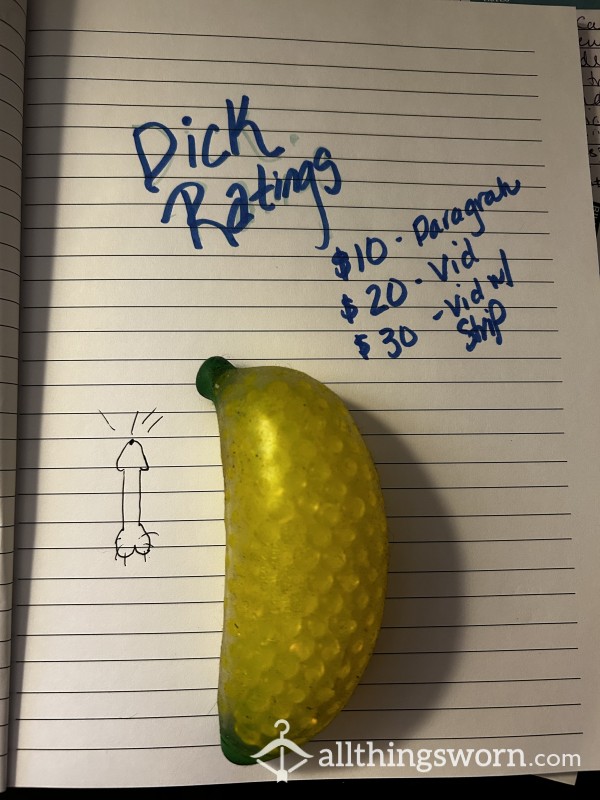 Dick
Ratings
$10 - Paragrah
$20 - Vid
$30 - vid w/
Strip
allthingsworn.com